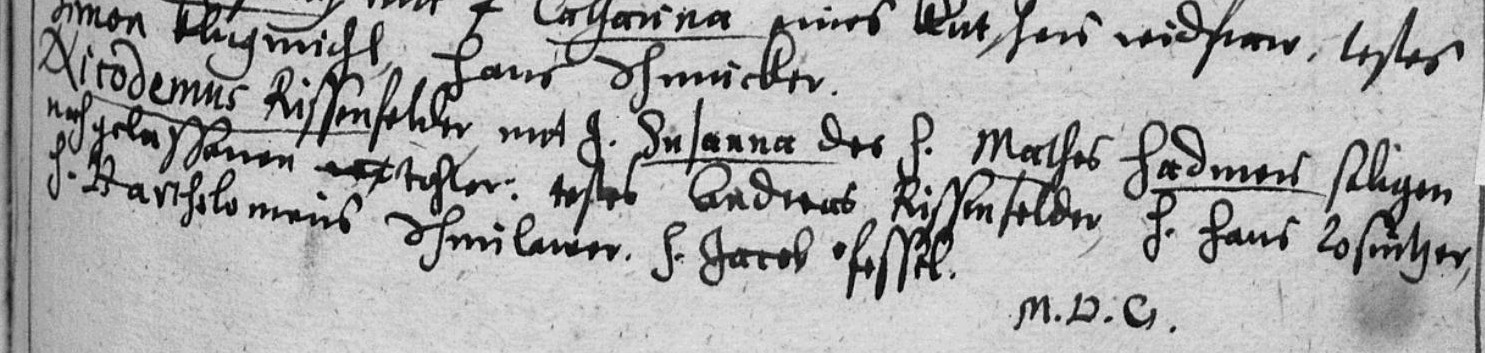 Simon Klugmichl, mit F Catharina eines Kutshers widfraw, testes
Hans Schmücker.
Nicodemus Rissenfelder mit J. Susanna des H. Mathes Hadmers seligen
nachgelassenen tochter: testes Andreas Rissenfelder, H. Hans Loswitzer,
H. Bartholomeus Schmilawer. H. Jacob Fessel.
M.D.C.